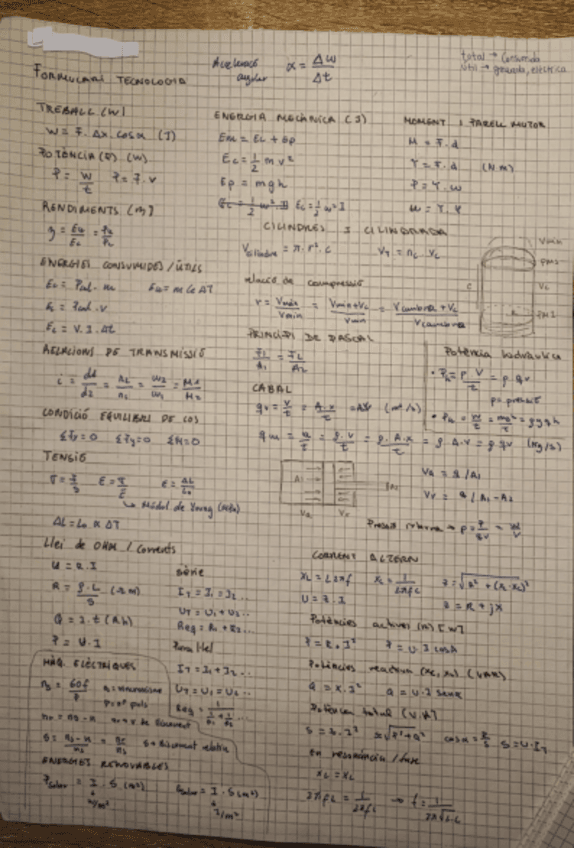 FORMULARI TECNOLOGIA
Acceleració angular α = Δw / Δt
total → Consumida
útil → generada, elèctrica
TREBALL (W)
W = F. Δx. cosα (J)
POTÈNCIA (P) (W)
P = W/t P = F. v
RENDIMENTS (η)
ENERGIES CONSUMIDES / ÚTILS
Ec = V. I. Δt
RELACIONS DE TRANSMISSIÓ
i = d1/d2 = n2/n1 = w2/w1 =
CONDICIÓ EQUILIBRI DE COS
ΣFx=0 ΣFy=0 ΣM=0
TENSIÓ
ε = ΔL/L0
↳ Mòdul de Young (MPa)
ΔL = L0 α ΔT
Llei de OHM / Corrents
U = R.I
R = ρ.L/S (Ω m)
Q = I.t (A h)
P = U.I
Sèrie
IT = I1 = I2 ..
UT = U1 + U2 ...
Req = R1 + R2 ...
Paral·lel
IT = I1 + I2 ...
UT = U1 = U2 ...
Req = 1 / (1/R1 + 1/R2) ...
MÀQ. ELÈCTRIQUES
ns = 60f/p
nr = ns - n
S = (ns - n)/ns = nr/ns S = lliscament relatiu
ENERGIES RENOVABLES
Psolar = I . S (m²)
W/m²
Esolar = I . S (m²)
J/m²
ENERGIA MECÀNICA (J)
Em = Ec + Ep
Ec = 1/2 m v²
Ep = mgh
Ec = 1/2 w² I
MOMENT I PARELL MOTOR
M = F. d
Γ = F. d (N m)
P = Γ. w
CILINDRES I CILINDRADA
Vcilindre = π. r². c
VT = nc . Vc
relació de compressió
r = Vmàx/Vmin = (Vmin + Vc)/Vmin = (Vcambra + Vc)/Vcambra
Vmin
PMS
Vc
C
PMI
PRINCIPI DE PASCAL
F1/A1 = F2/A2
CABAL
qv = V/t = A.x/t = A.v (m³/s)
qm = m/t = ρ.V/t = ρ.A.x/t = ρ.A.v = ρ.qv (kg/s)
Potència hidràulica
• Ph = p V/t = p . qv
p = pressió
VA = q/A1
Vr = q/A1 - A2
CORRENT ALTERN
XL = L2πf Xc = 1/2πfC Z = √R² + (XL-Xc)²
U = Z. I Z = R + jX
Potències activa (R) [W]
P = R. I² P = U. I cosα
Potències reactiva (XC, XL) (VAR)
Q = X. I² Q = U. I senα
Potència total (V.A)
En ressonància / fase
XL = XC
2πfL = 1/2πfC → f = 1/2π√L.C